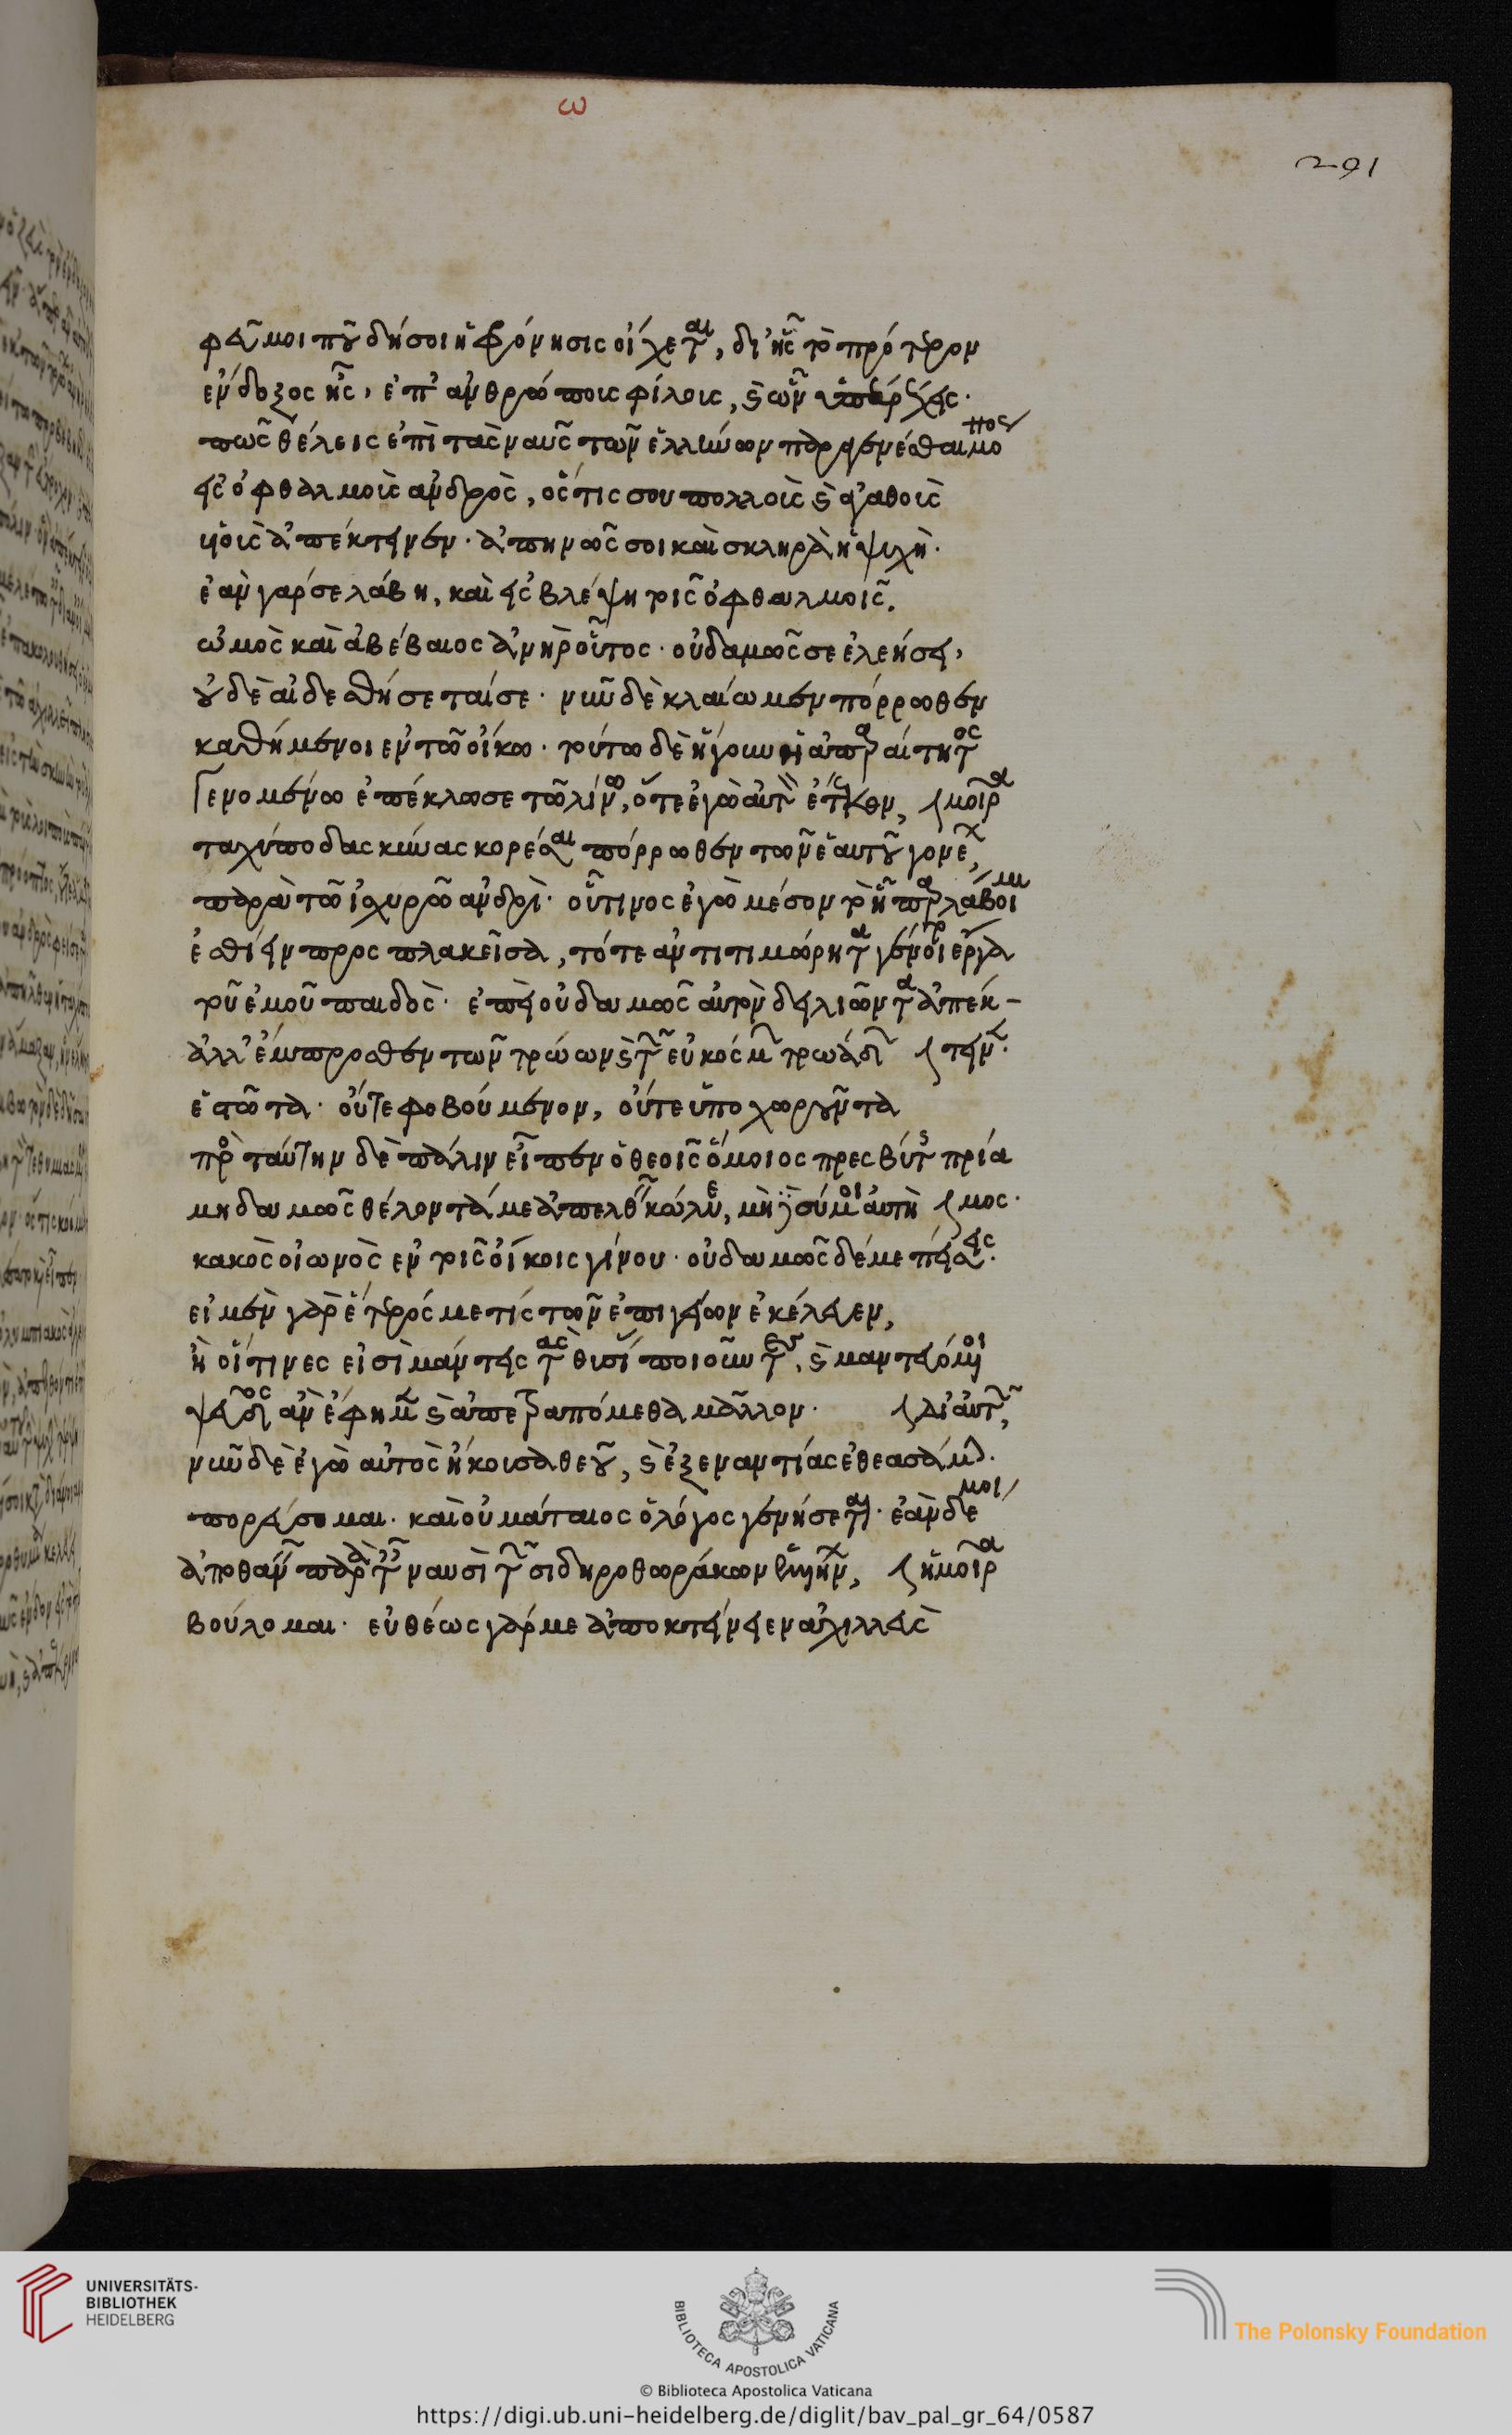 ω
291
φεῦ μοι ποῦ δή σοι ἡ φρόνησις οἴχεται, δι' ἧς τὸ πρότερον
ἔνδοξος ἦς, ἐπ' ἀνθρώποις φίλοις, καὶ ὧν ὑπάρχεις.
πῶς θέλεις ἐπὶ τὰς ναῦς τῶν ἑλλήνων παραγενέσθαι μόνος
εἰς ὀφθαλμοὺς ἀνδρὸς, ὅστις σου πολλοὺς καὶ ἀγαθοὺς
υἱοὺς ἀπέκτεινεν. ἀπηνὼς σοι καὶ σκληρὰ ἡ ψυχὴ.
ἐὰν γάρ σε λάβη, καὶ εἰσβλέψη τοῖς ὀφθαλμοῖς.
ὠμὸς καὶ ἀβέβαιος ἀνὴρ οὗτος. οὐδαμῶς σε ἐλεήσει,
οὐδὲ αἰδεσθήσεταί σε. νῦν δὲ κλαίωμεν πόρρωθεν
καθήμενοι ἐν τῶ οἴκω. τούτω δὲ ἤγουν ἡ ἀπαραίτητος
γενομένω ἐπέκλωσε τῶ λίνω, ὅτε ἐγὼ αὐτὸν ἔτεκον, μοῖρα
ταχύποδας κύνας κορέσαι πόρρωθεν τῶν ἑαυτοῦ γονέων,
παρὰ τῶ ἰσχυρῶ ἀνδρὶ. οὗτινος ἐγὼ μέσον τὸ ἧπαρ λάβοιμι
ἐσθίειν προσπλακεῖσα, τότε ἀντιτιμώρητα γένοιτο ἔργα
τοῦ ἐμοῦ παιδὸς. ἐπεὶ οὐδαμῶς αὐτὸν δειλιῶντα ἀπέκ-
ἀλλ' ἔμπροσθεν τῶν τρώων καὶ τῶν εὐκόσμων τρωάδων τεινεν.
ἑστῶτα. οὔτε φοβούμενον, οὔτε ὑποχωροῦντα
πρὸς ταύτην δὲ πάλιν εἶπεν ὁ θεοῖς ὅμοιος πρεσβύτης πρία
μηδαμῶς θέλοντά με ἀπελθεῖν κώλυε, μὴ δὲ σύ μοι αὐτὴ μος.
κακὸς οἰωνὸς ἐν τοῖς οἴκοις γίνου. οὐδαμῶς δέ με πείσεις.
εἰ μὲν γὰρ ἕτερός με τίς τῶν ἐπιγείων ἐκέλευεν,
ἢ οἵτινες εἰσὶ μάντεις τὰς θυσίας ποιοῦντες, καὶ μαντευόμενοι
ψεῦδος ἂν ἔφημεν καὶ ἀπετραπόμεθα μᾶλλον. δι' αὐτῶν,
νῦν δὲ ἐγὼ αὐτὸς ἤκουσα θεοῦ, καὶ ἐξεναντίας ἐθεασάμην.
πορεύσομαι. καὶ οὐ μάταιος ὁ λόγος γενήσεται. ἐὰν δέ μοι
ἀποθανεῖν παρὰ ταῖς ναυσὶ τῶν σιδηροθωράκων ἑλλήνων, ἡ μοῖρα
βούλομαι. εὐθέως γάρ με ἀποκτείνειεν ἀχιλλεὺς
UNIVERSITÄTS-
BIBLIOTHEK
HEIDELBERG
BIBLIOTECA APOSTOLICA VATICANA
The Polonsky Foundation
© Biblioteca Apostolica Vaticana
https://digi.ub.uni-heidelberg.de/diglit/bav_pal_gr_64/0587